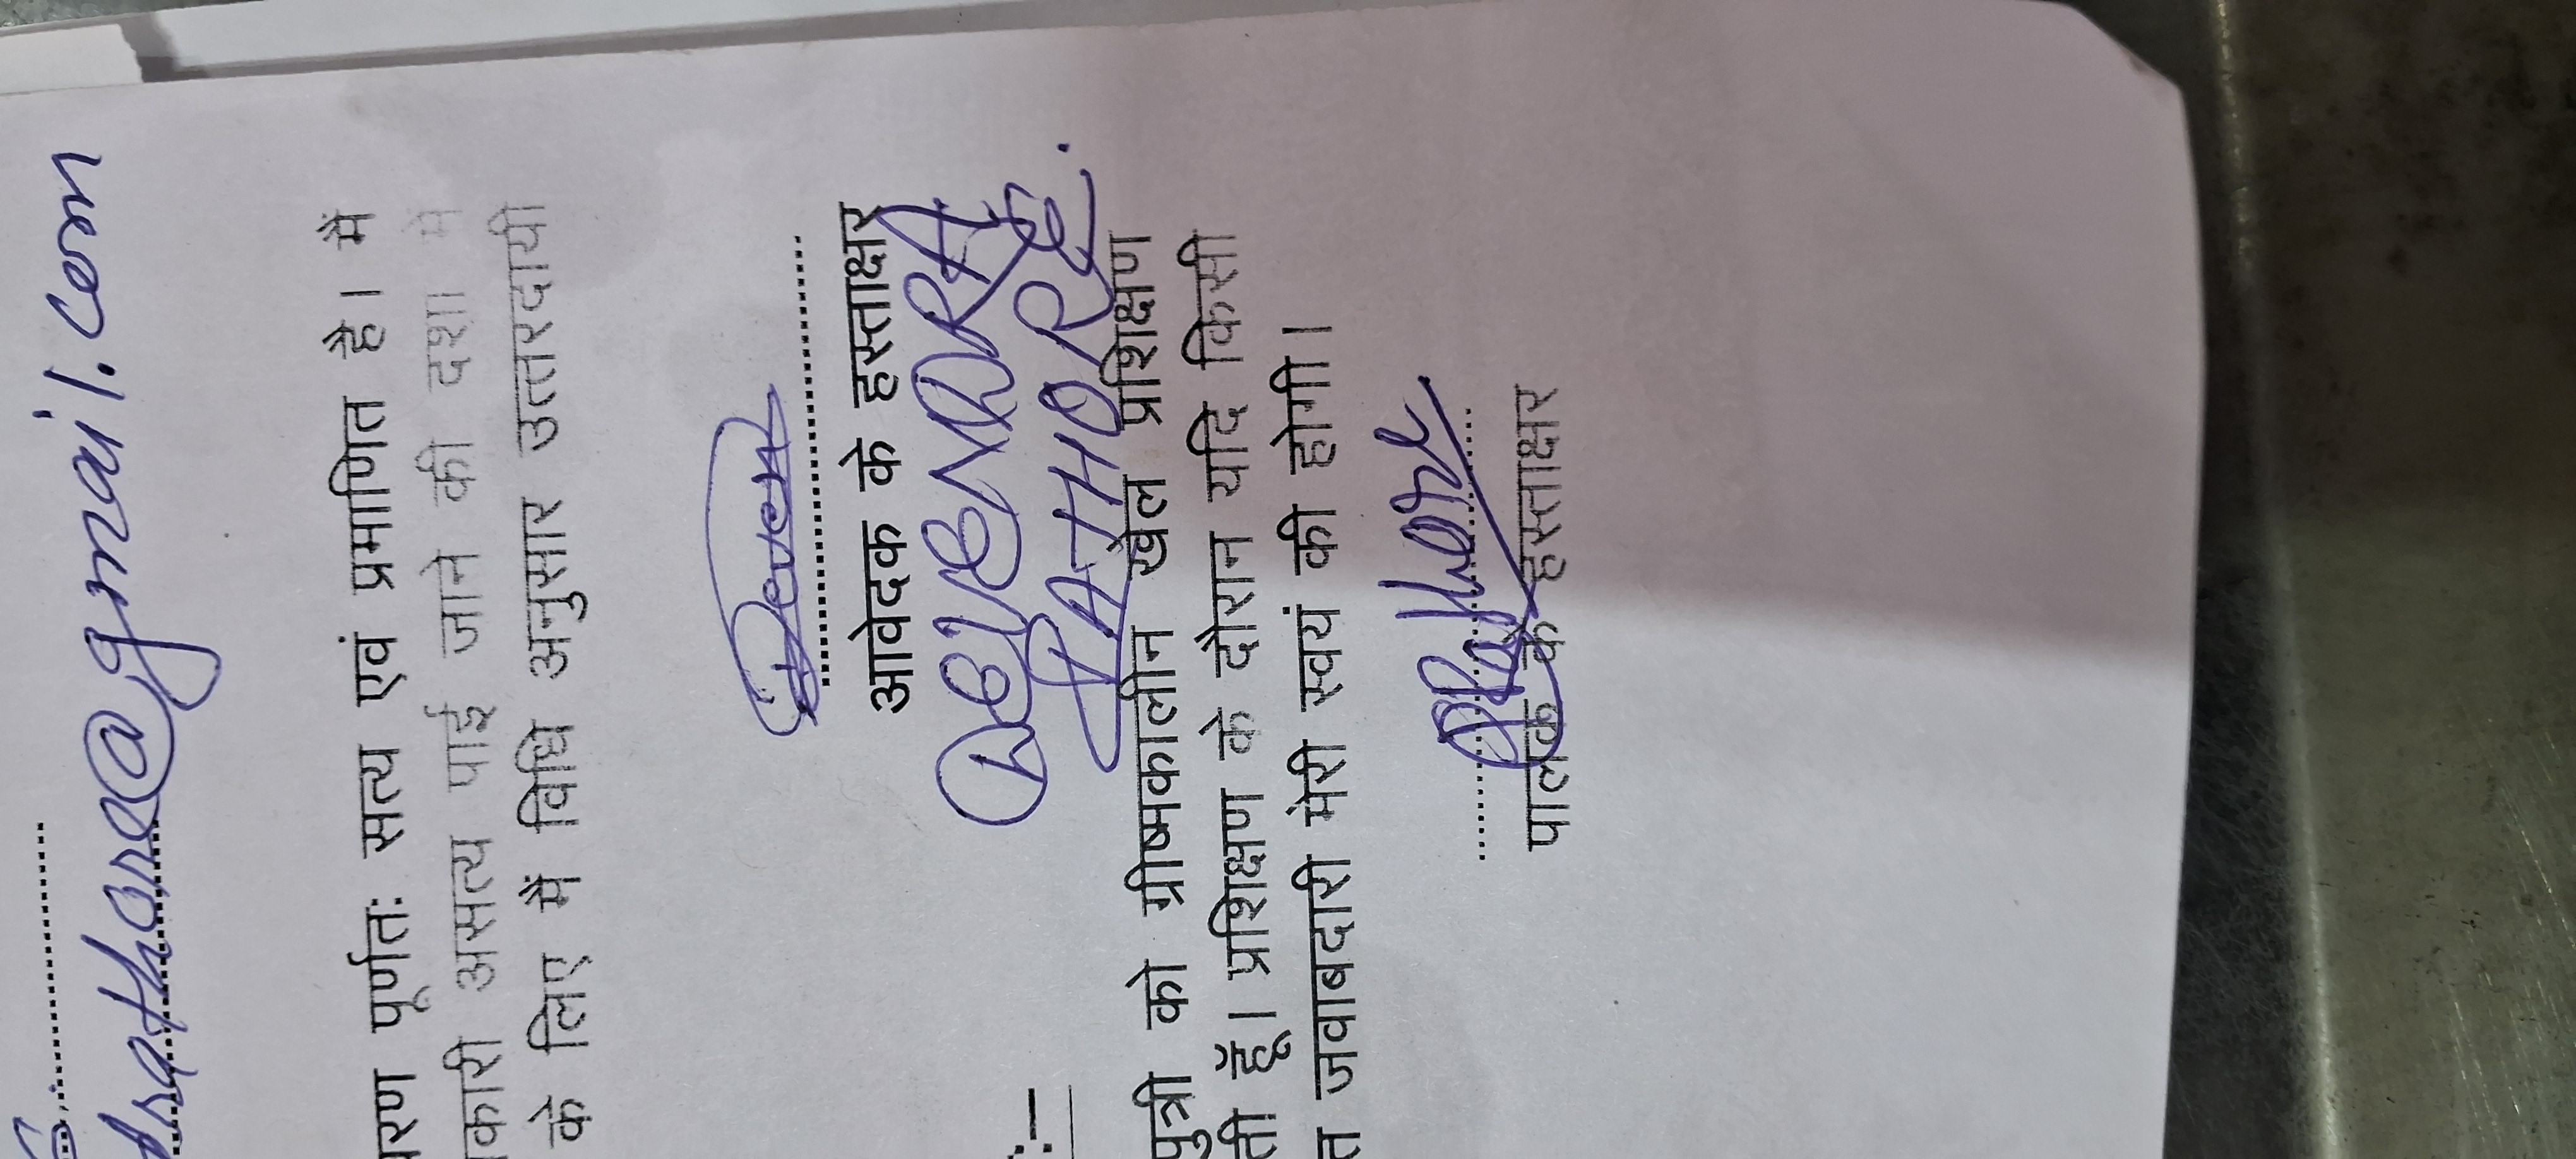 rathore@gmail.com
पूर्णतः सत्य एवं प्रमाणित है। मैं
असत्य पाई जाने की दशा में
के लिए मैं विधि अनुसार उत्तरदायी
आवेदक के हस्ताक्षर
RATHORE.
:—
पुत्री को ग्रीष्मकालीन खेल प्रशिक्षण
हूँ। प्रशिक्षण के दौरान यदि किसी
जवाबदारी मेरी स्वयं की होगी।
Rathore
पालक के हस्ताक्षर